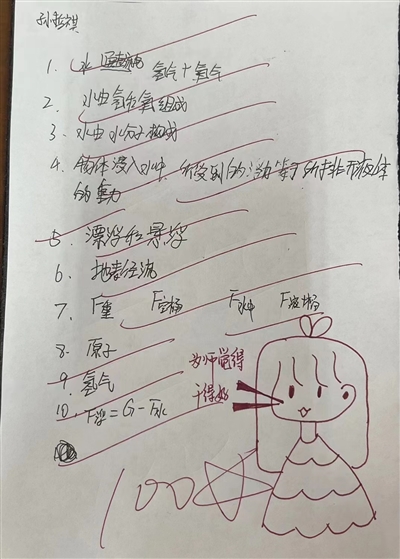 1. 水 氢气+氧气
2. 水由氢和氧组成
3. 水由水分子构成
4. 物体浸入水中,所受到的浮力等于所排开液体
的重力
5. 漂浮和悬浮
6. 地表径流
7. F重 F空桶 F水中 F液桶
8. 原子
9. 氢气
10. F浮=G-F水
老师觉得
干得好
100